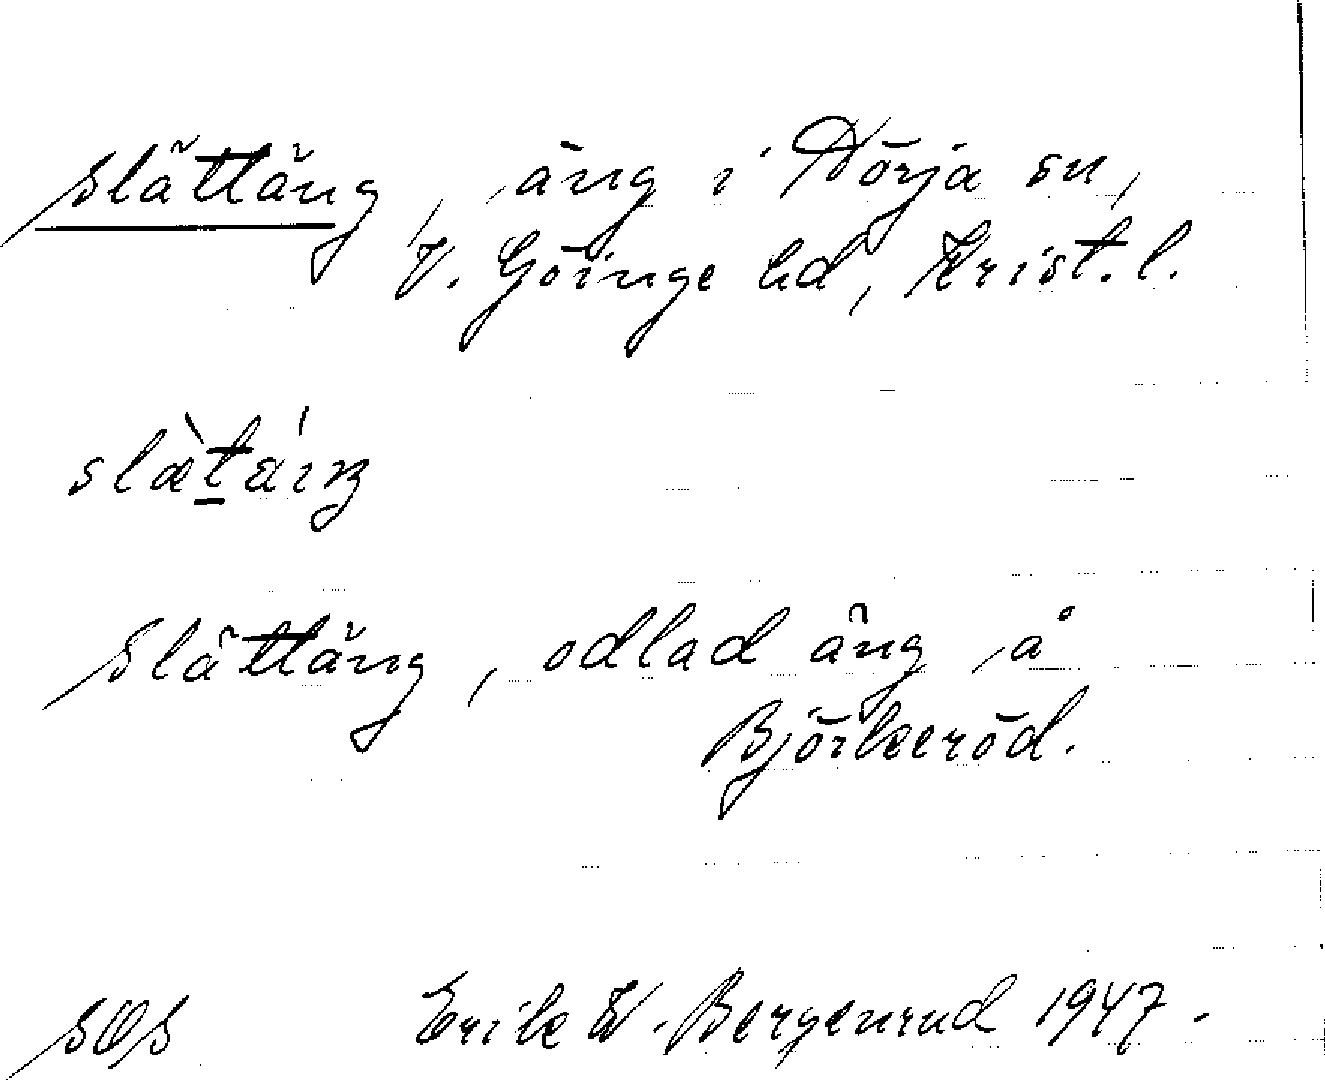 Slättäng, äng i Nörja sn,
V. Göinge hd, Krist. l.
Slättäng, odlad äng å
Björkeröd.
Erik W. Bergenrud 1947.